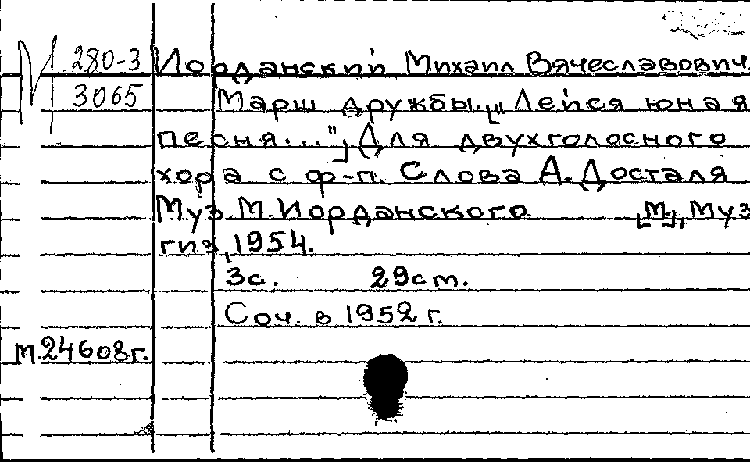 М 280-3 Иорданский, Михаил Вячеславович
3065 Марш дружбы. ["Лейся юная
песня..."] Для двухголосного
хора с ф-п. Слова А. Досталя
Муз. М. Иорданского [М.], Муз
гиз, 1954.
3с. 29см.
Соч. в 1952 г.
М.24608г.